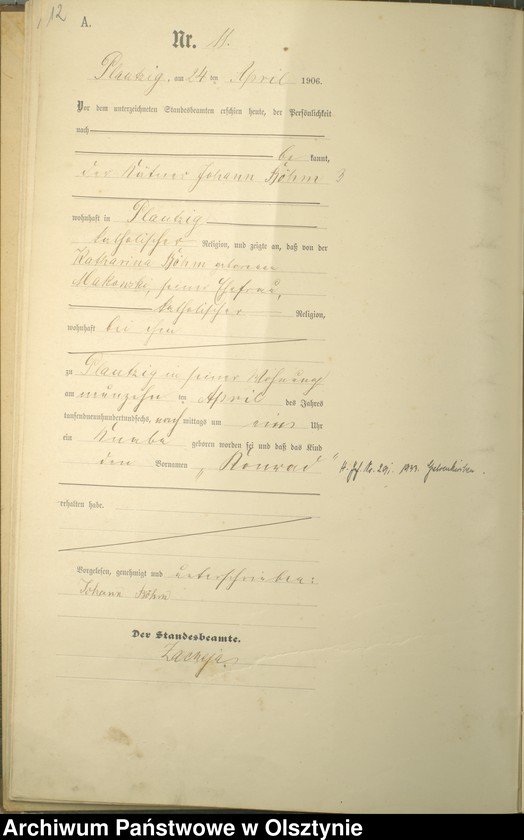 12
A.
Nr. 11.
Plautzig, am 24 ten April 1906.
Vor dem unterzeichneten Standesbeamten erschien heute, der Persönlichkeit
nach
be kannt,
der Kätner Johann Böhm
wohnhaft in Plautzig
katholischer Religion, und zeigte an, daß von der
Katharina Böhm geborene
Makowski, seiner Ehefrau,
katholischer Religion,
wohnhaft bei ihm
zu Plautzig in seiner Wohnung
am neunzehn ten April des Jahres
tausendneunhundertundsechs, nachmittags um eins Uhr
ein Knabe geboren worden sei und daß das Kind
den Vornamen „Konrad“
H. Nr. 1933. Gelsenkirchen.
erhalten habe.
Vorgelesen, genehmigt und unterschrieben:
Johann Böhm
Der Standesbeamte.
Archiwum Państwowe w Olsztynie